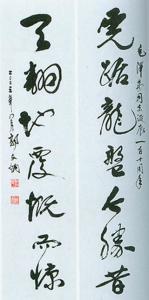 毛澤東同志誕辰一百十周年
虎踞龍盤今勝昔
天翻地覆慨而慷